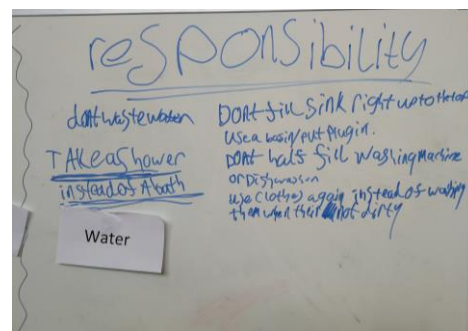 resPonsibility
dont waste water
TAKE a Shower
instead of A bath
Water
DONt fill sink right up to the top
Use a basin/put plug in.
DONt half fill washing Machine
or Dishwasher
use (clothes) again instead of washing
them when their not dirty